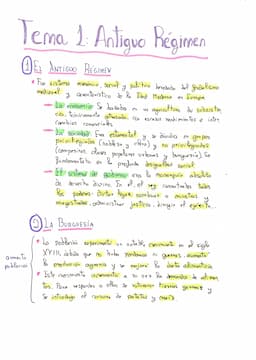 Tema 1: Antiguo Régimen
① El Antiguo Régimen
• Fue sistema económico, social y político heredado del feudalismo
medieval y característico de la Edad Moderna en Europa.
→ La economía: Se basaba en una agricultura de subsisten
cia, técnicamente atrasada, con escasos rendimientos e inter
cambios comerciales.
→ La sociedad: Era estamental y se dividía en grupos
privilegiados (nobleza y clero) y no privilegiados
(campesinos, clases populares urbanas y burguesía). Se
fundamentaba en la desigualdad social.
→ El sistema de gobierno era la monarquía absoluta
de derecho divino. En él, el rey concentraba todos
los poderes: dictar leyes, nombrar a ministros y
magistrados, administrar justicia, dirigir el ejército...
② La Burguesía
• La población experimentó un notable crecimiento en el siglo
XVIII debido que no hubo guerras, aumentó
la producción agraria y se mejoró la dieta alimenticia.
aumento
población
• Este crecimiento aumentó a su vez la demanda de alimen
tos. Para responder a ello se roturaron tierras y
se introdujo el consumo de patata y maíz.